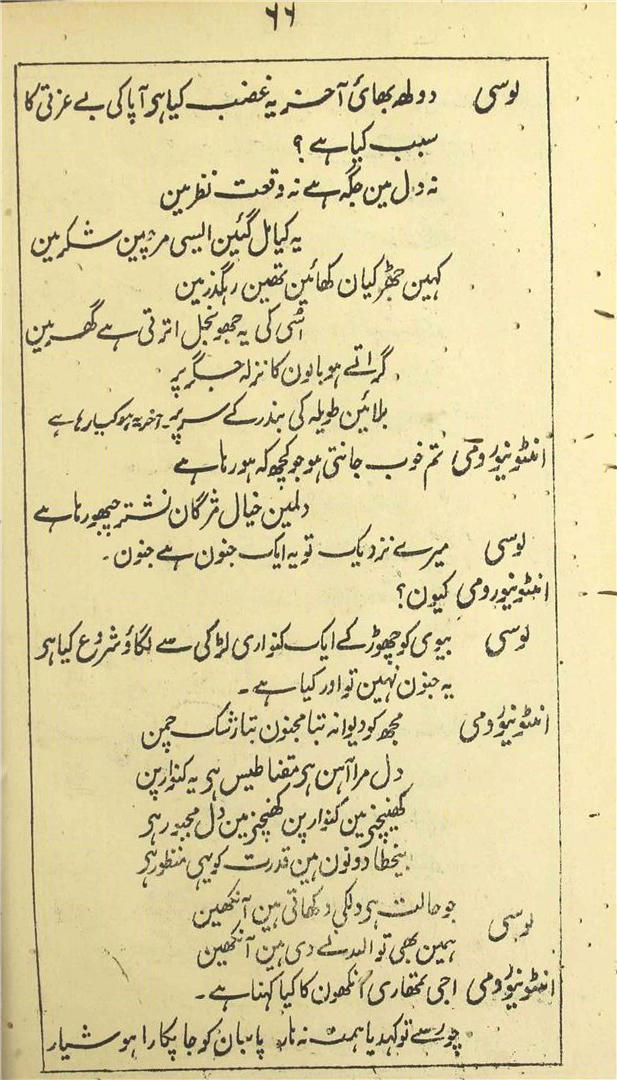 ۶۶
لوسی دولھ بھائی آخر یہ غضب کیا ہی آپا کی بے عزتی کا
سبب کیا ہے ؟
نہ دل مین جگہ ہے نہ وقعت نظر مین
یہ کیا مل گئین ایسی مرچین شکر مین
کہین جھڑکیان کھائین تھین رہگذر مین
اسی کی یہ جھونجل اترتی ہے گھر مین
گراتے ہو بالون کا نزلہ جگر پر
بلائین طویلہ کی بندر کے سر پر۔ آخر یہ ہو کیا رہا ہے
انٹونیورومی تم خوب جانتی ہو جو کچھ کہ ہو رہا ہے
دلمین خیال مژگان نشتر چبھو رہا ہے
لوسی میرے نزدیک تو یہ ایک جنون ہے جنون۔
انٹونیورومی کیون ؟
لوسی بیوی کو چھوڑ کے ایک کنواری لڑکی سے لگاؤ شروع کیا ہی
یہ جنون نہین تو اور کیا ہے۔
انٹونیورومی مجھ کو دیوانہ بتا مجنون بتا رشک چمن
دل مرا آہن ہی مقناطیس ہی یہ کنوارپن
کھینچنے مین کنوارپن کھنچنے مین دل مجبور ہی
بیخطا دونون ہین قدرت کو یہی منظور ہی
لوسی جو حالت ہی دلکی دکھاتی ہین آنکھین
ہمین بھی تو اللہ نے دی ہین آنکھین
انٹونیورومی اجی تمھاری آنکھون کا کیا کہنا ہے۔
چور سے تو کہدیا ہمت نہ ہار پاسبان کو جا پکارا ہوشیار